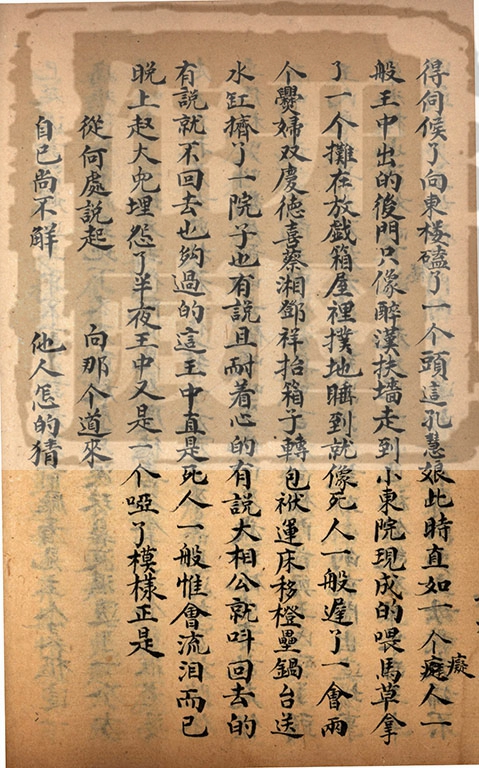 得伺候了向東楼磕了一个頭這孔慧娘此時直如一个癡人一
般王中出的後門只像醉漢扶墻走到小東院現成的喂馬草拿
了一个攤在放戲箱屋裡撲地睡到就像死人一般遲了一會兩
个爨婦双慶德喜蔡湘鄧祥抬箱子轉包袱運床移櫈壘鍋台送
水缸擠了一院子也有說且耐着心的有說大相公就叫回去的
有說就不回去也夠過的這王中直是死人一般惟會流泪而已
晩上赵大兒埋怨了半夜王中又是一个啞了模樣正是
從何處說起 向那个道來
自己尚不觧 他人怎的猜